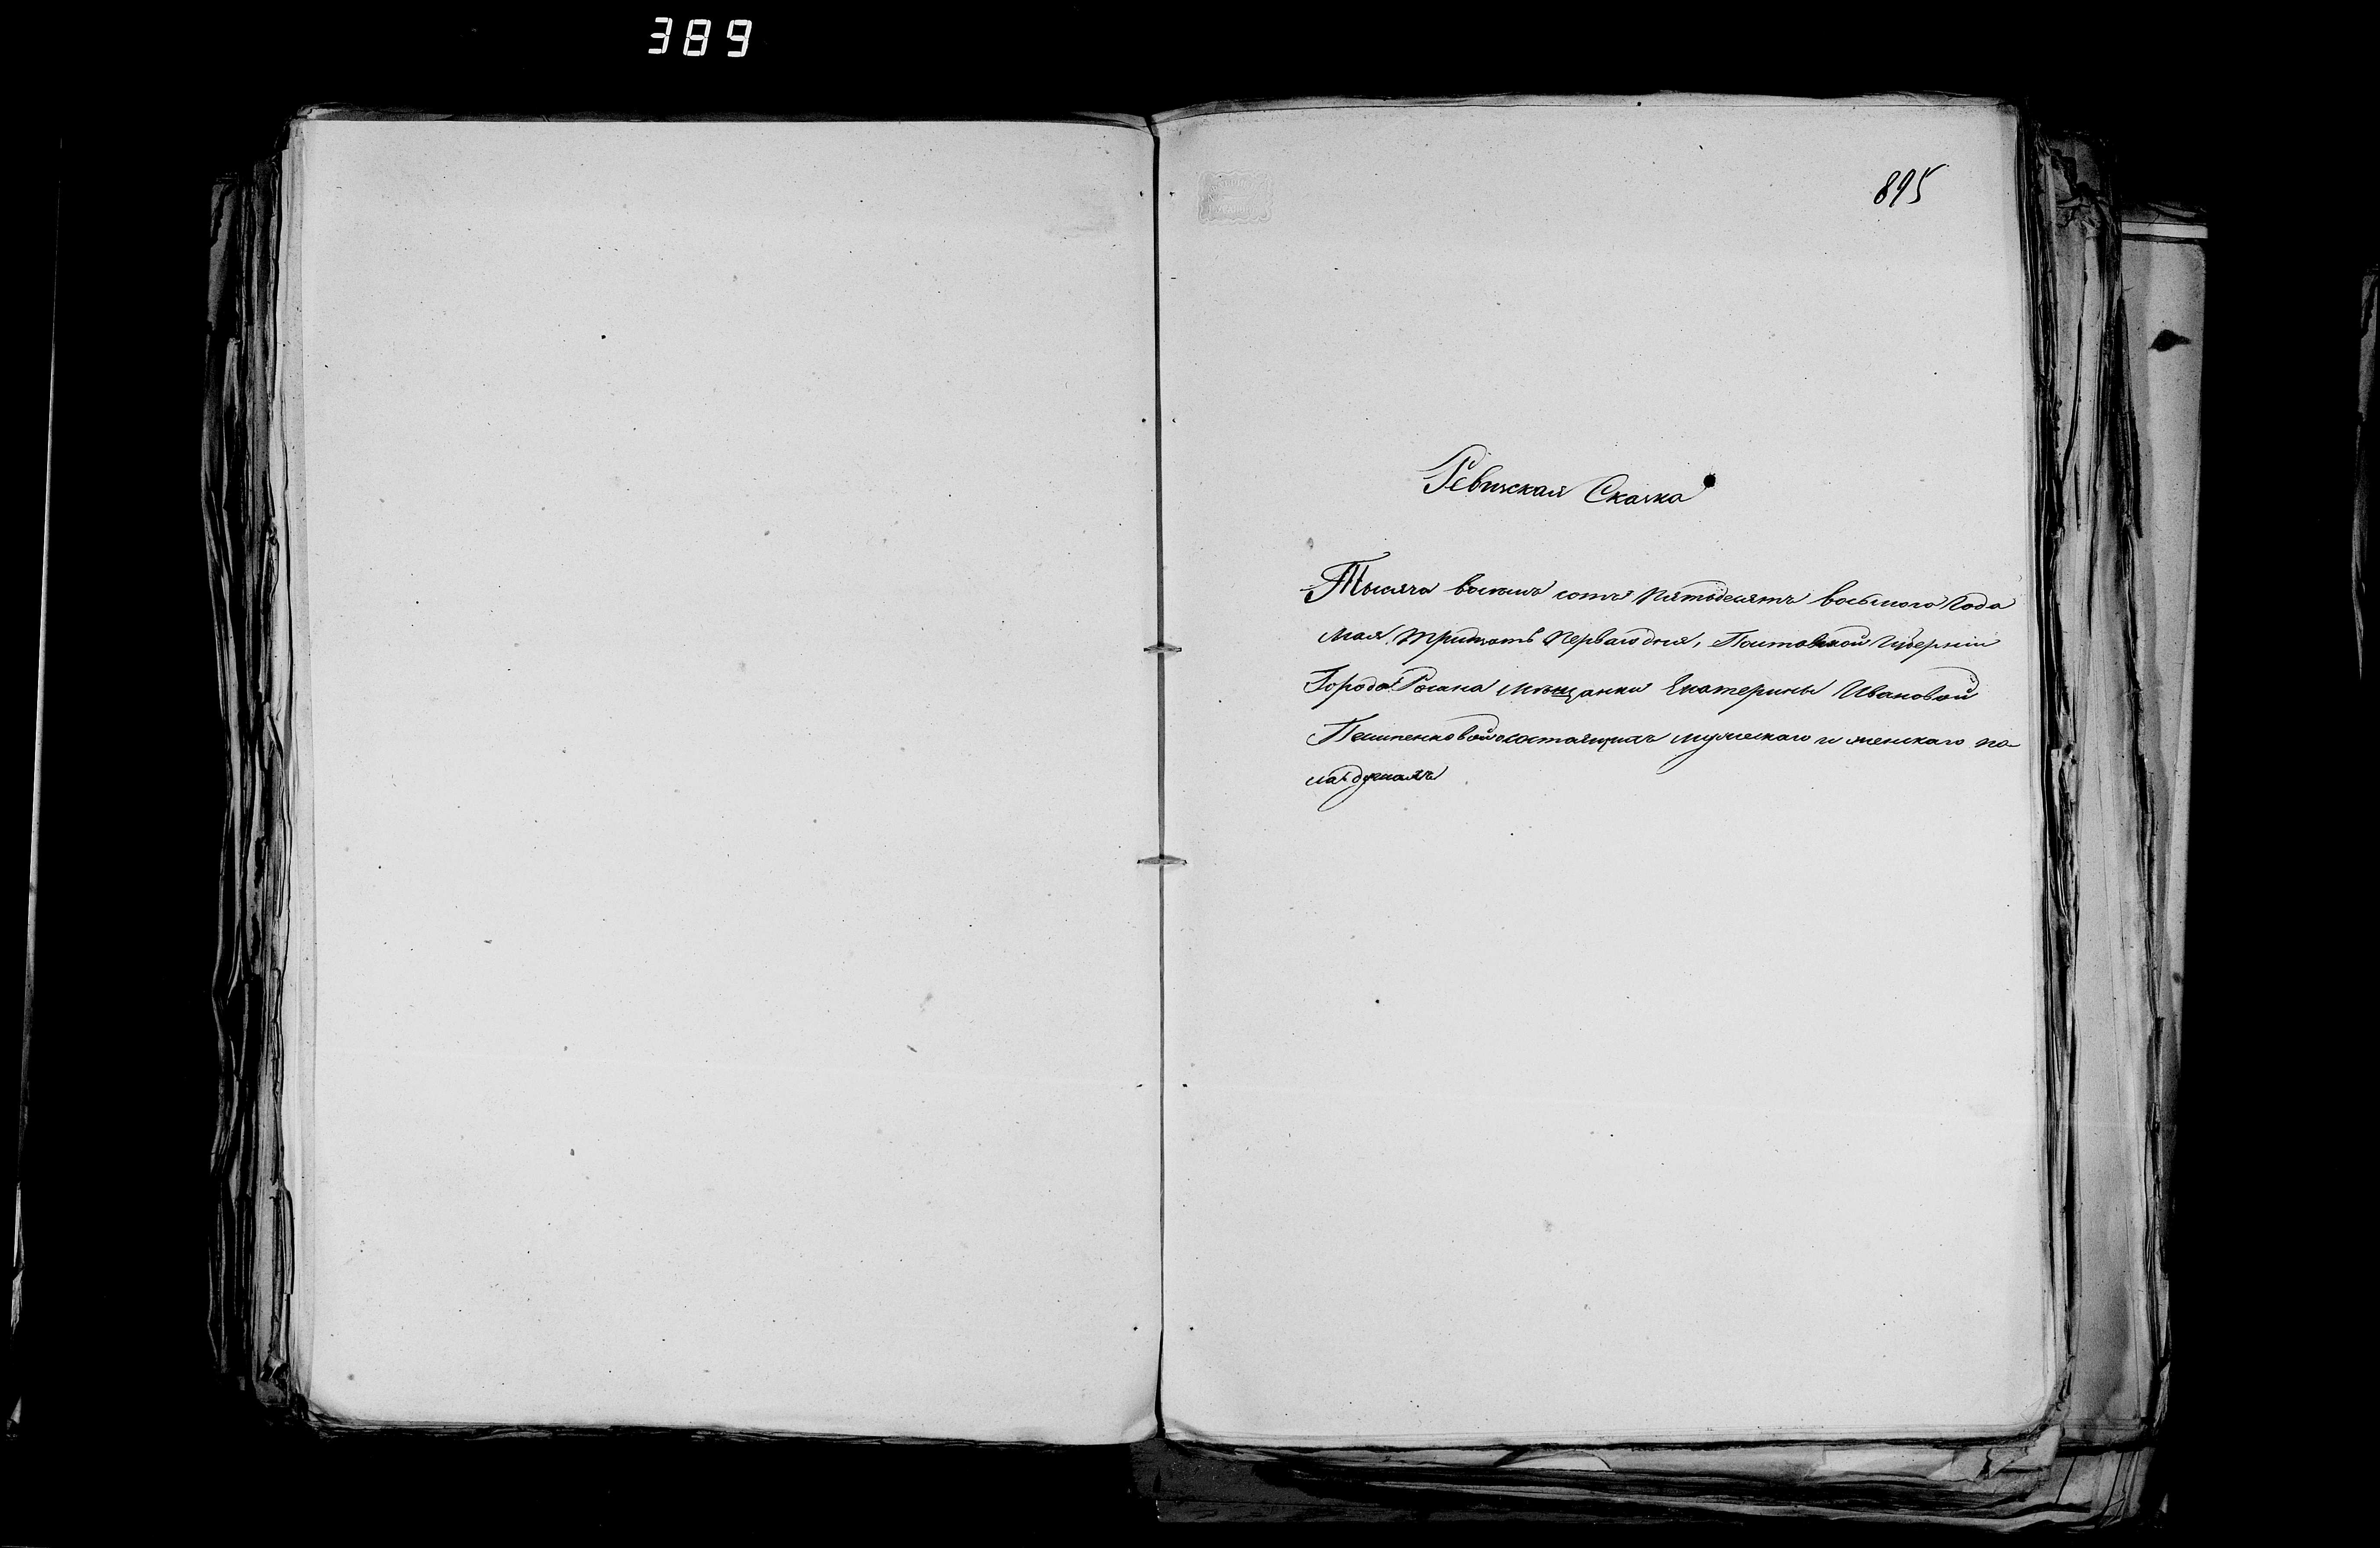 389
895
Ревизская Сказка
Тысяча восемь сотъ пятьдесятъ восьмого Года
Мая тридцать перваго дня, Полтавской Губерніи
Города мѣщанки Екатерины Ивановой
состоящихъ мужескаго и женскаго по-
ла душахъ